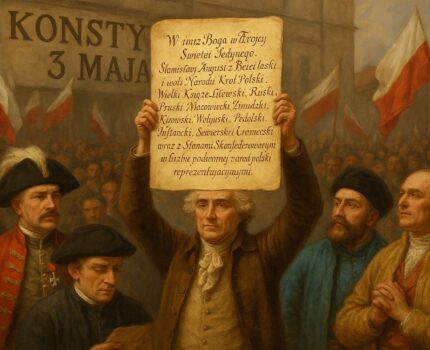 KONSTY
3 MAJA
W imiz Boga w Trojcy
Swietei Jedynego.
Stanisławy August z Bożei łaski
i woli Narodu Krol Polski.
Wielki Książe Litewski, Ruski,
Pruski, Mazowiecki, Żmudzki,
Kiiowski, Wołyuski, Podolski,
Inflancki, Sewierski Czerniecski
wraz z Stanami Skonfederowanym
w liczbe podwornej narod polski
reprezentuiącymi.